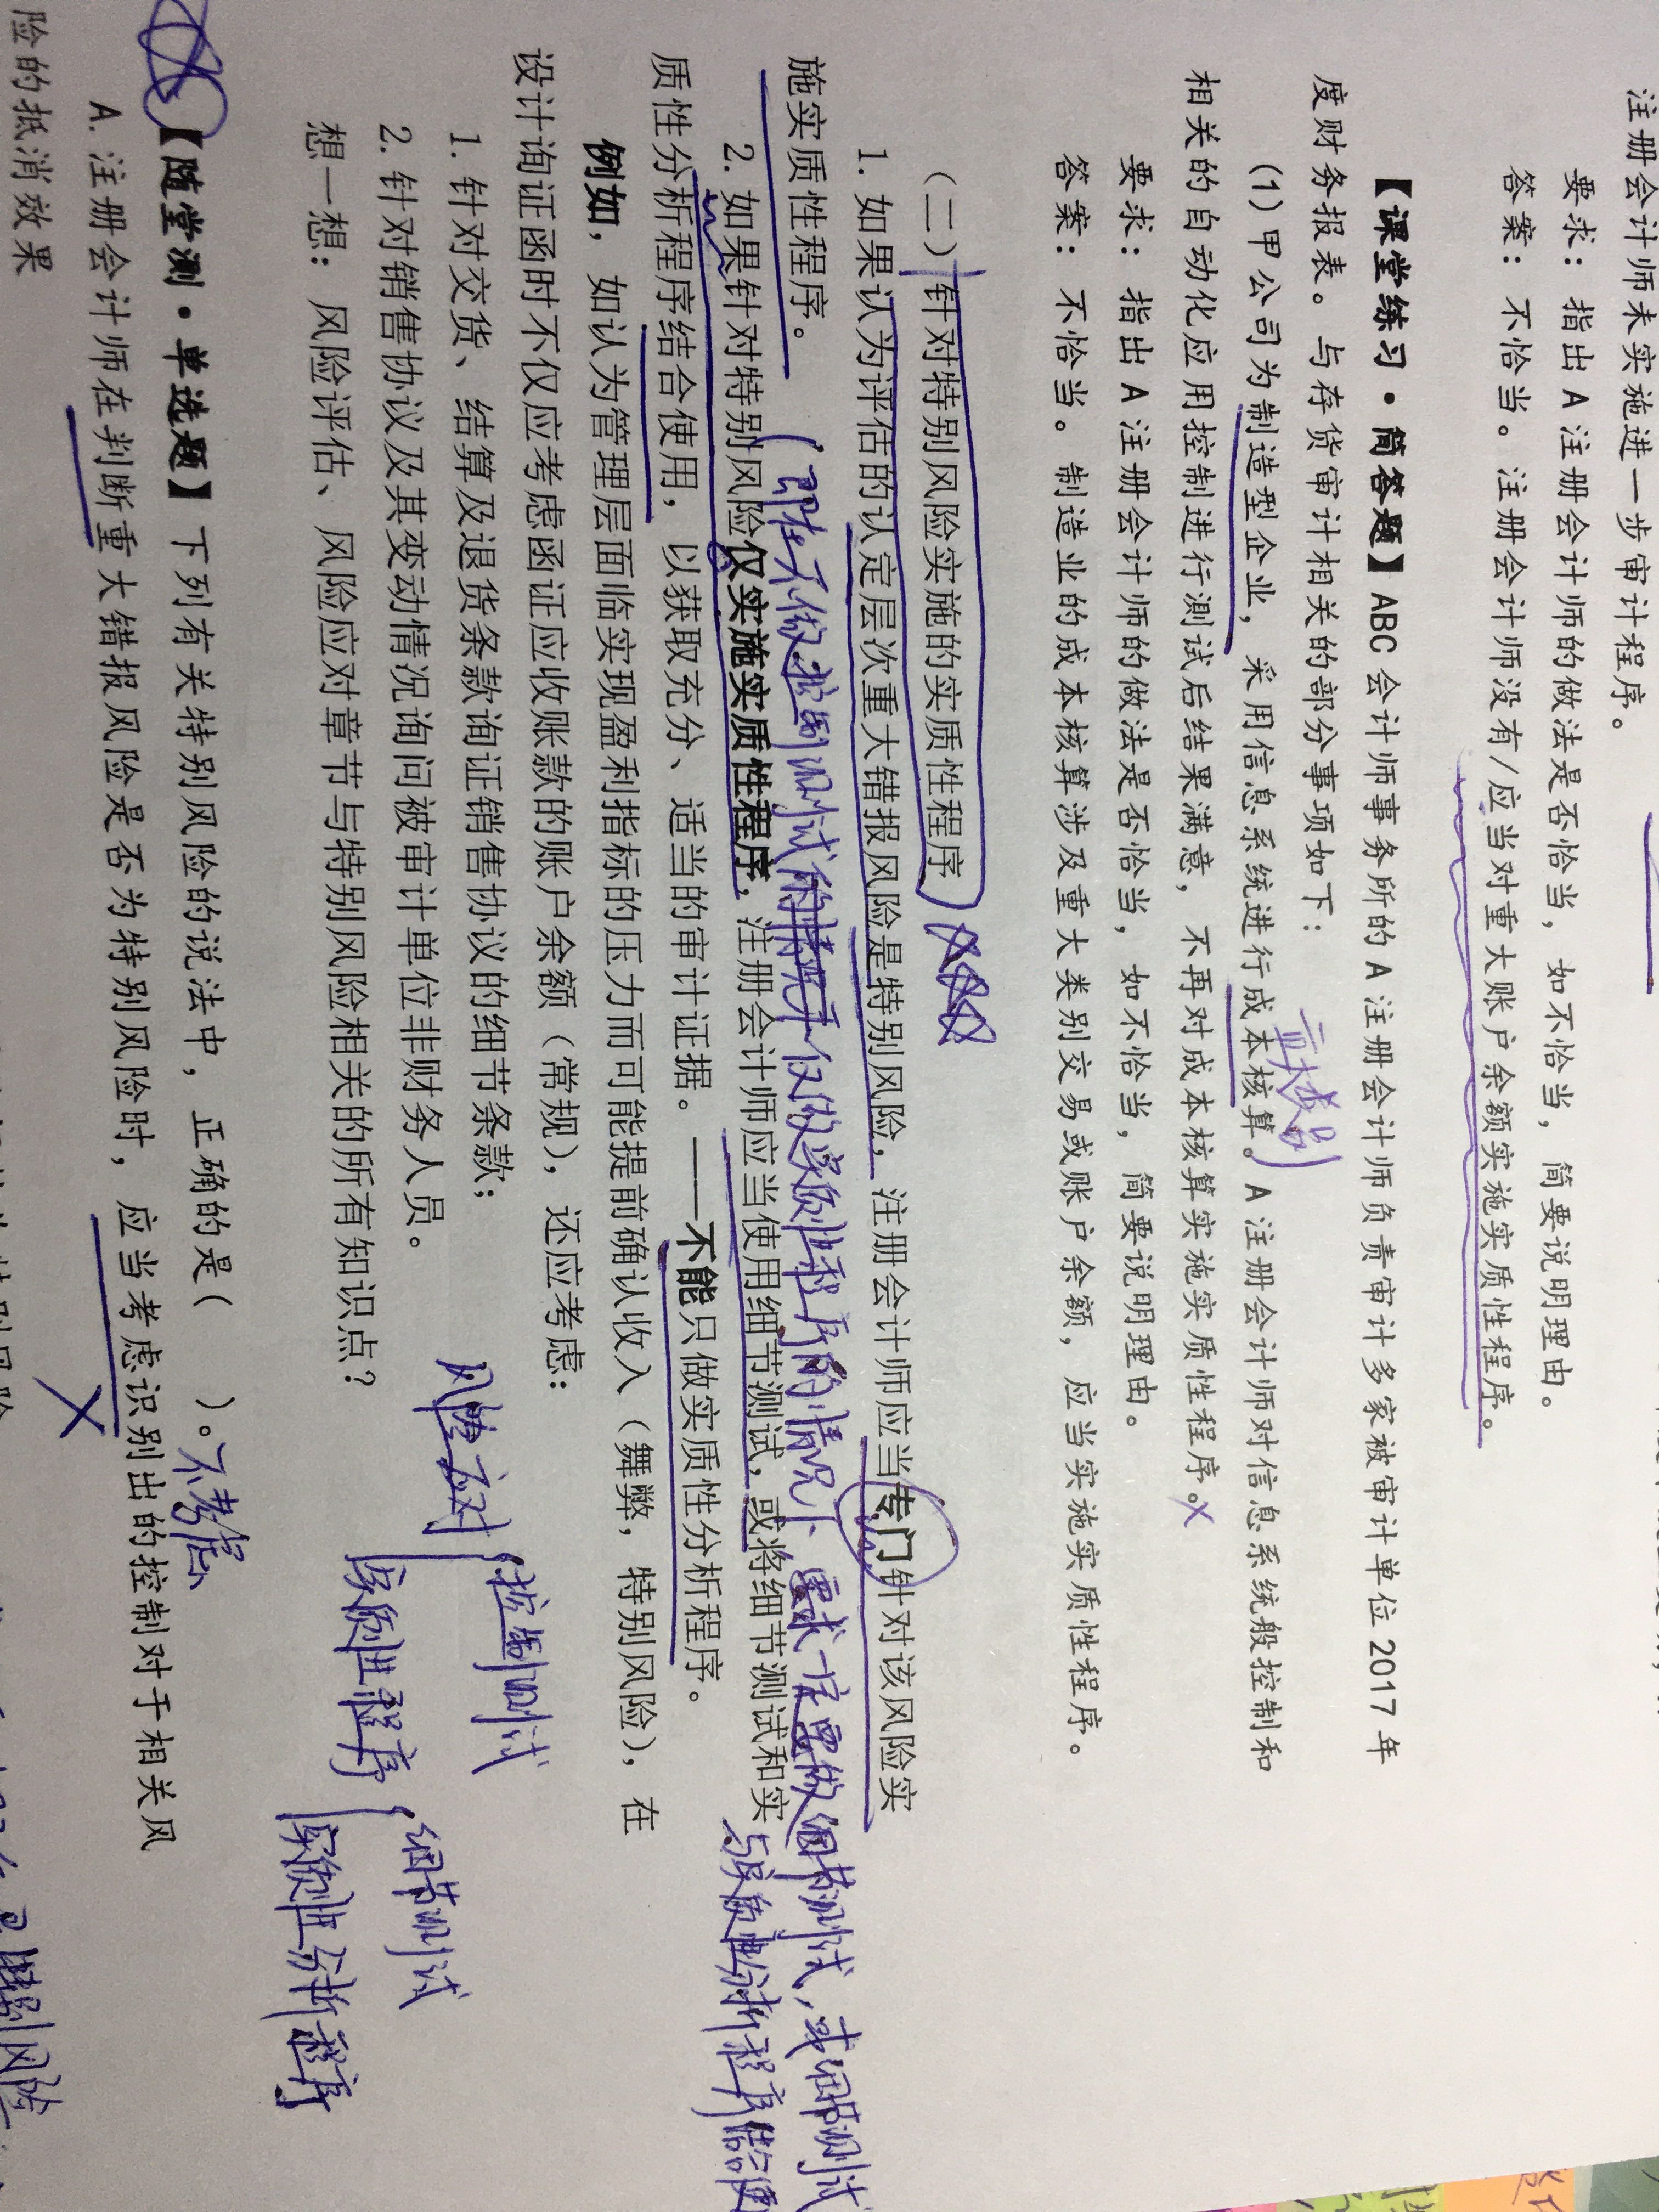 注册会计师未实施进一步审计程序。
要求：指出 A 注册会计师的做法是否恰当，如不恰当，简要说明理由。
答案：不恰当。注册会计师没有/应当对重大账户余额实施实质性程序。
【课堂练习·简答题】ABC 会计师事务所的 A 注册会计师负责审计多家被审计单位 2017 年
度财务报表。与存货审计相关的部分事项如下：
重大类别
(1) 甲公司为制造型企业，采用信息系统进行成本核算。A 注册会计师对信息系统般控制和
相关的自动化应用控制进行测试后结果满意，不再对成本核算实施实质性程序。X
要求：指出 A 注册会计师的做法是否恰当，如不恰当，简要说明理由。
答案：不恰当。制造业的成本核算涉及重大类别交易或账户余额，应当实施实质性程序。
（二）针对特别风险实施的实质性程序
1. 如果认为评估的认定层次重大错报风险是特别风险，注册会计师应当专门针对该风险实
施实质性程序。
（即在不做控制测试的情况下仅做实质性程序的情况下、要求一定要做细节测试，或细节测试
与实质性分析程序结合使
2. 如果针对特别风险仅实施实质性程序，注册会计师应当使用细节测试，或将细节测试和实
质性分析程序结合使用，以获取充分、适当的审计证据。——不能只做实质性分析程序。
例如，如认为管理层面临实现盈利指标的压力而可能提前确认收入（舞弊，特别风险），在
设计询证函时不仅应考虑函证应收账款的账户余额（常规），还应考虑：
1. 针对交货、结算及退货条款询证销售协议的细节条款；
2. 针对销售协议及其变动情况询问被审计单位非财务人员。
想一想：风险评估、风险应对章节与特别风险相关的所有知识点？
风险应对
控制测试
实质性程序
细节测试
实质性分析程序
【随堂测·单选题】下列有关特别风险的说法中，正确的是（ ）。
不考虑
A. 注册会计师在判断重大错报风险是否为特别风险时，应当考虑识别出的控制对于相关风
险的抵消效果
X
特别风险